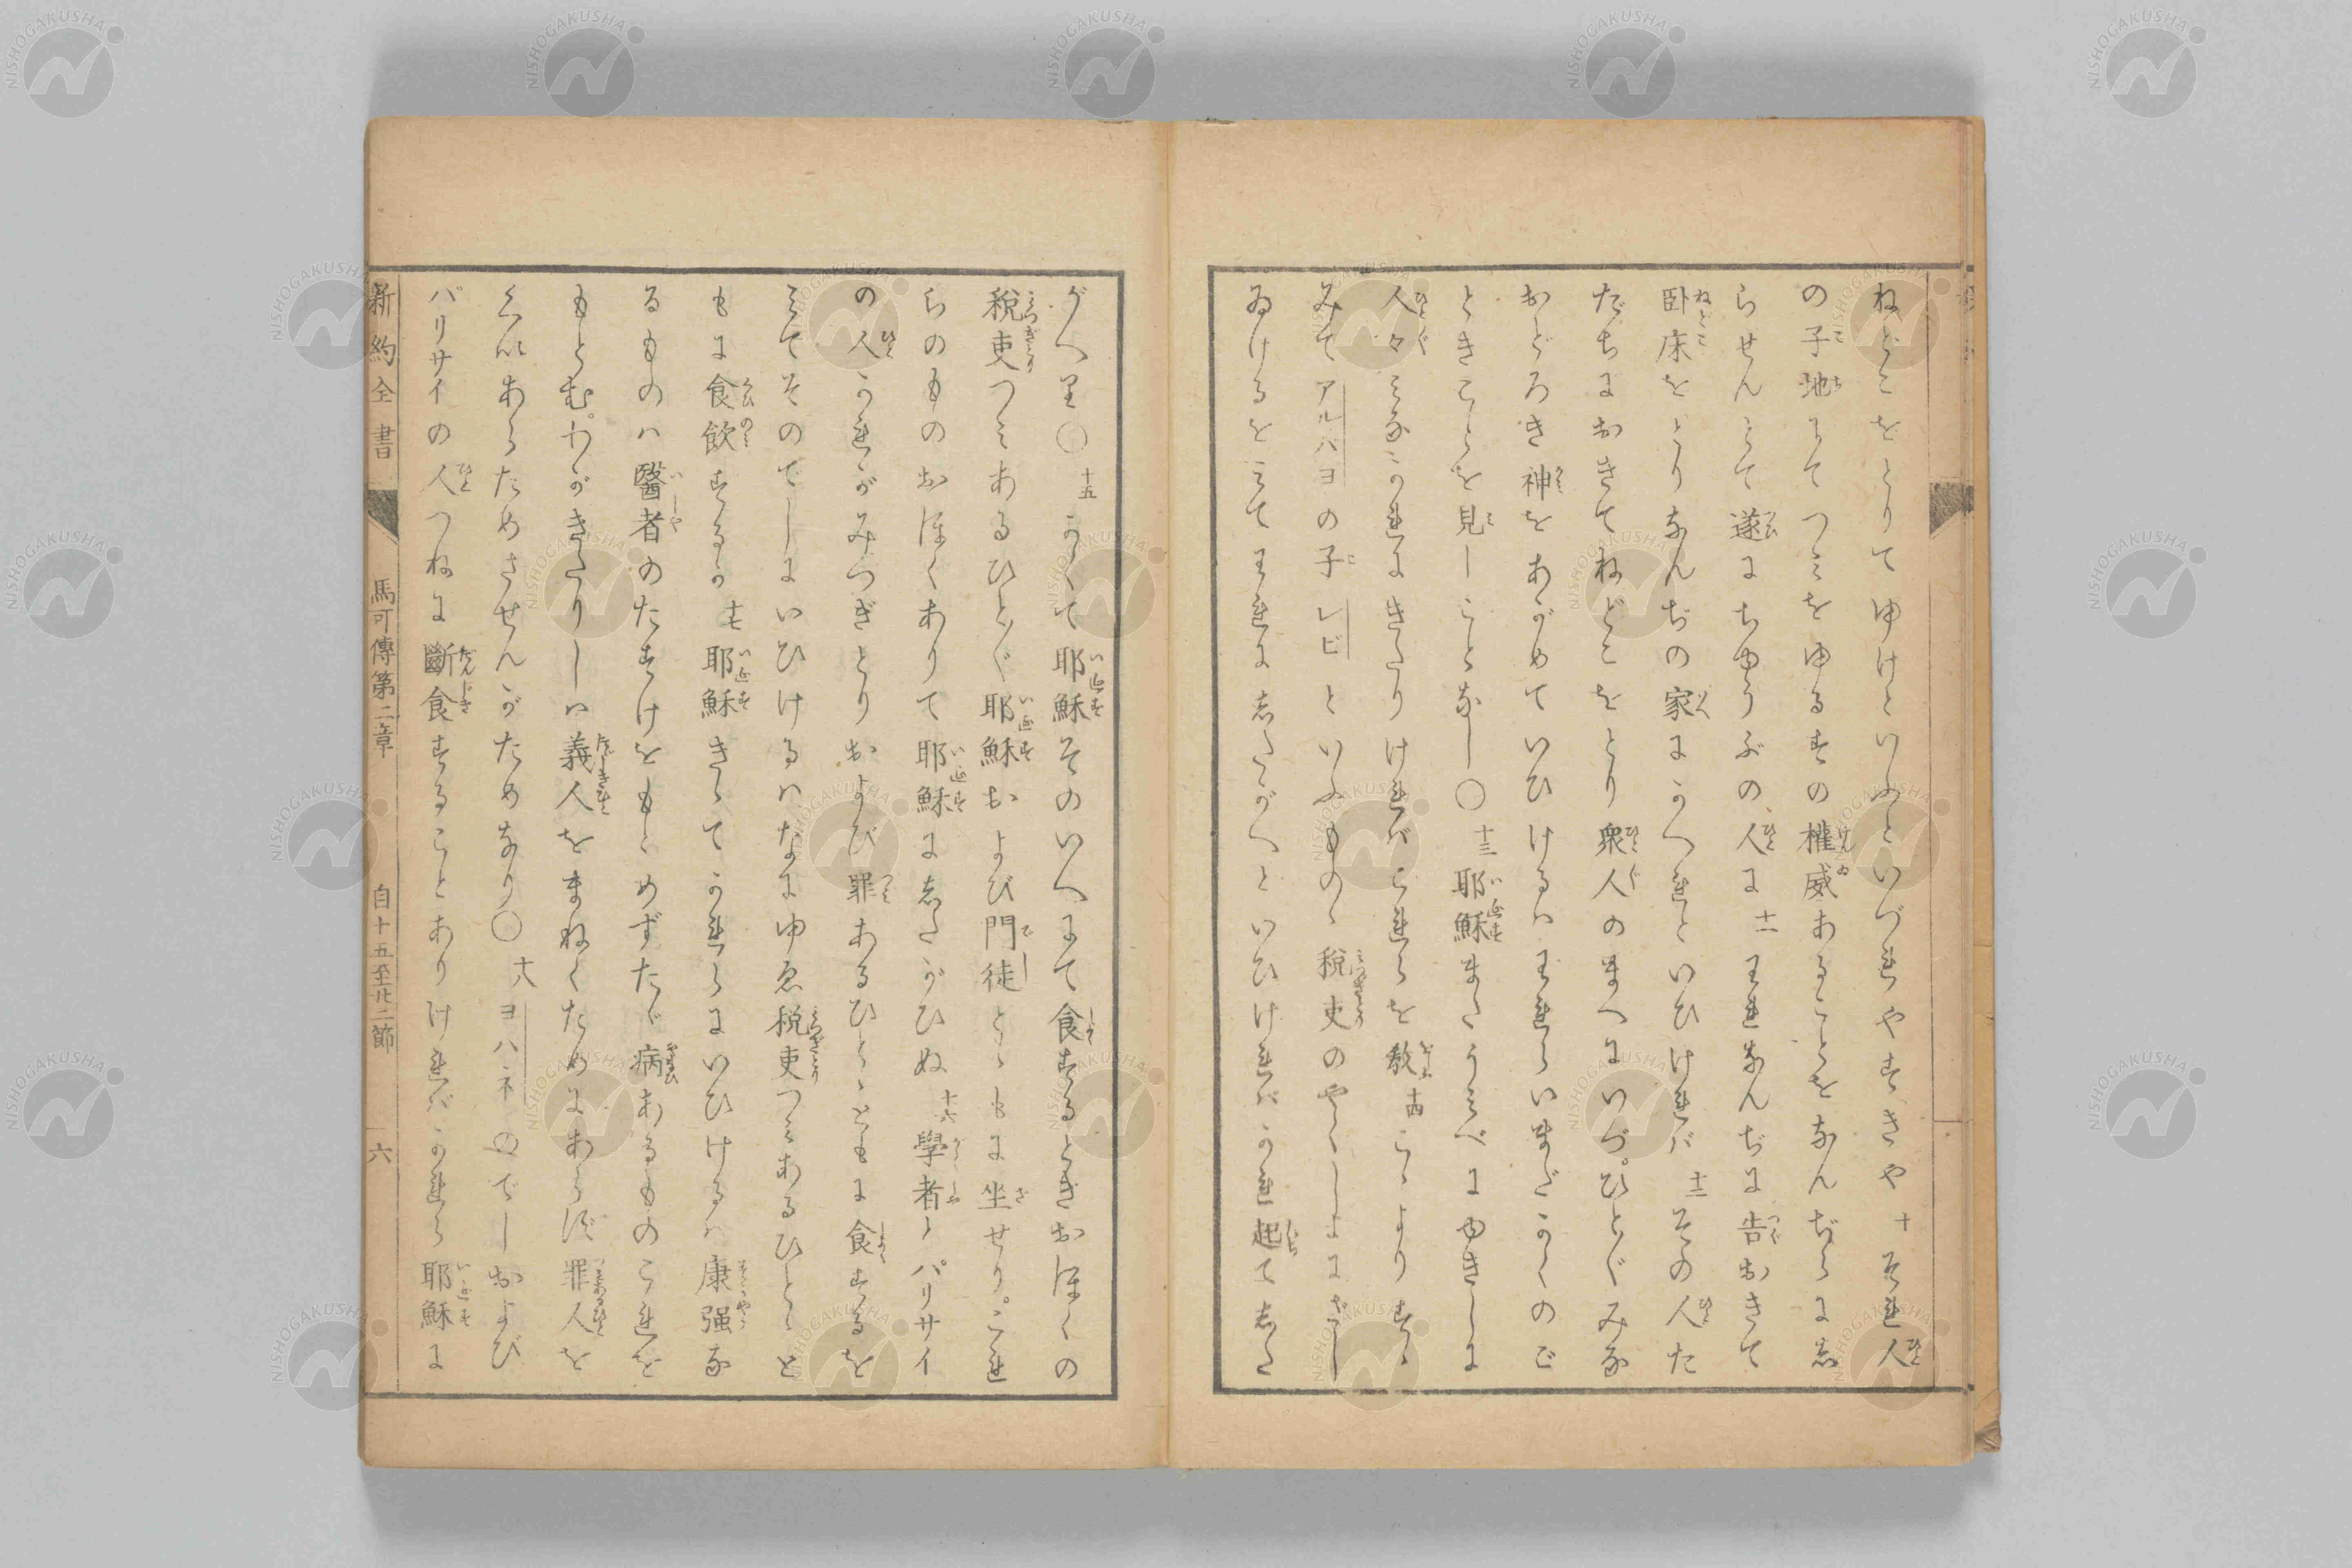 ねどこをとりてゆけといふといづれややすきや 十 それ人
の子地にてつみをゆるすの權威あることをなんぢらに志
らせんとて遂にちゆうぶの人に 十一 われなんぢに告おきて
卧床をとりなんぢの家にかへれといひければ 十二 その人た
だちにおきてねどこをとり衆人のまへにいづ。ひとぐみな
おどろき神をあがめていひけるハわれらいまだかくのご
ときことを見しことなし〇 十三 耶穌またうみべにゆきしに
人々みなかれにきたりければこれらを教 十四 こゝよりすゝ
みてアルパヨの子レビといふものゝ税吏のやくしよにざし
ゐけるをみてわれに志たがへといひければかれ起て志た
がへり〇 十五 かくて耶穌そのいへにて食するときおほくの
税吏つみあるひとぐ耶穌および門徒とゝもに坐せり。これ
らのものおほくありて耶穌に志たがひぬ 十六 學者とパリサイ
の人かれがみつぎとりおよび罪あるひとゝともに食するを
みてそのでしにいひけるハなにゆゑ税吏つみあるひとゝと
もに食飲するか 十七 耶穌きゝてかれらにいひけるハ康强な
るものハ醫者のたすけをもとめずたゞ病あるものこれを
もとむ。わがきたりしハ義人をまねくためにあらず罪人を
くいあらためさせんがためなり〇 十八 ヨハネのでしおよび
パリサイの人つねに斷食することありければかれら耶穌に
新約全書 馬可傳第二章 自十五至廿二節 六
NISHOGAKUSHA